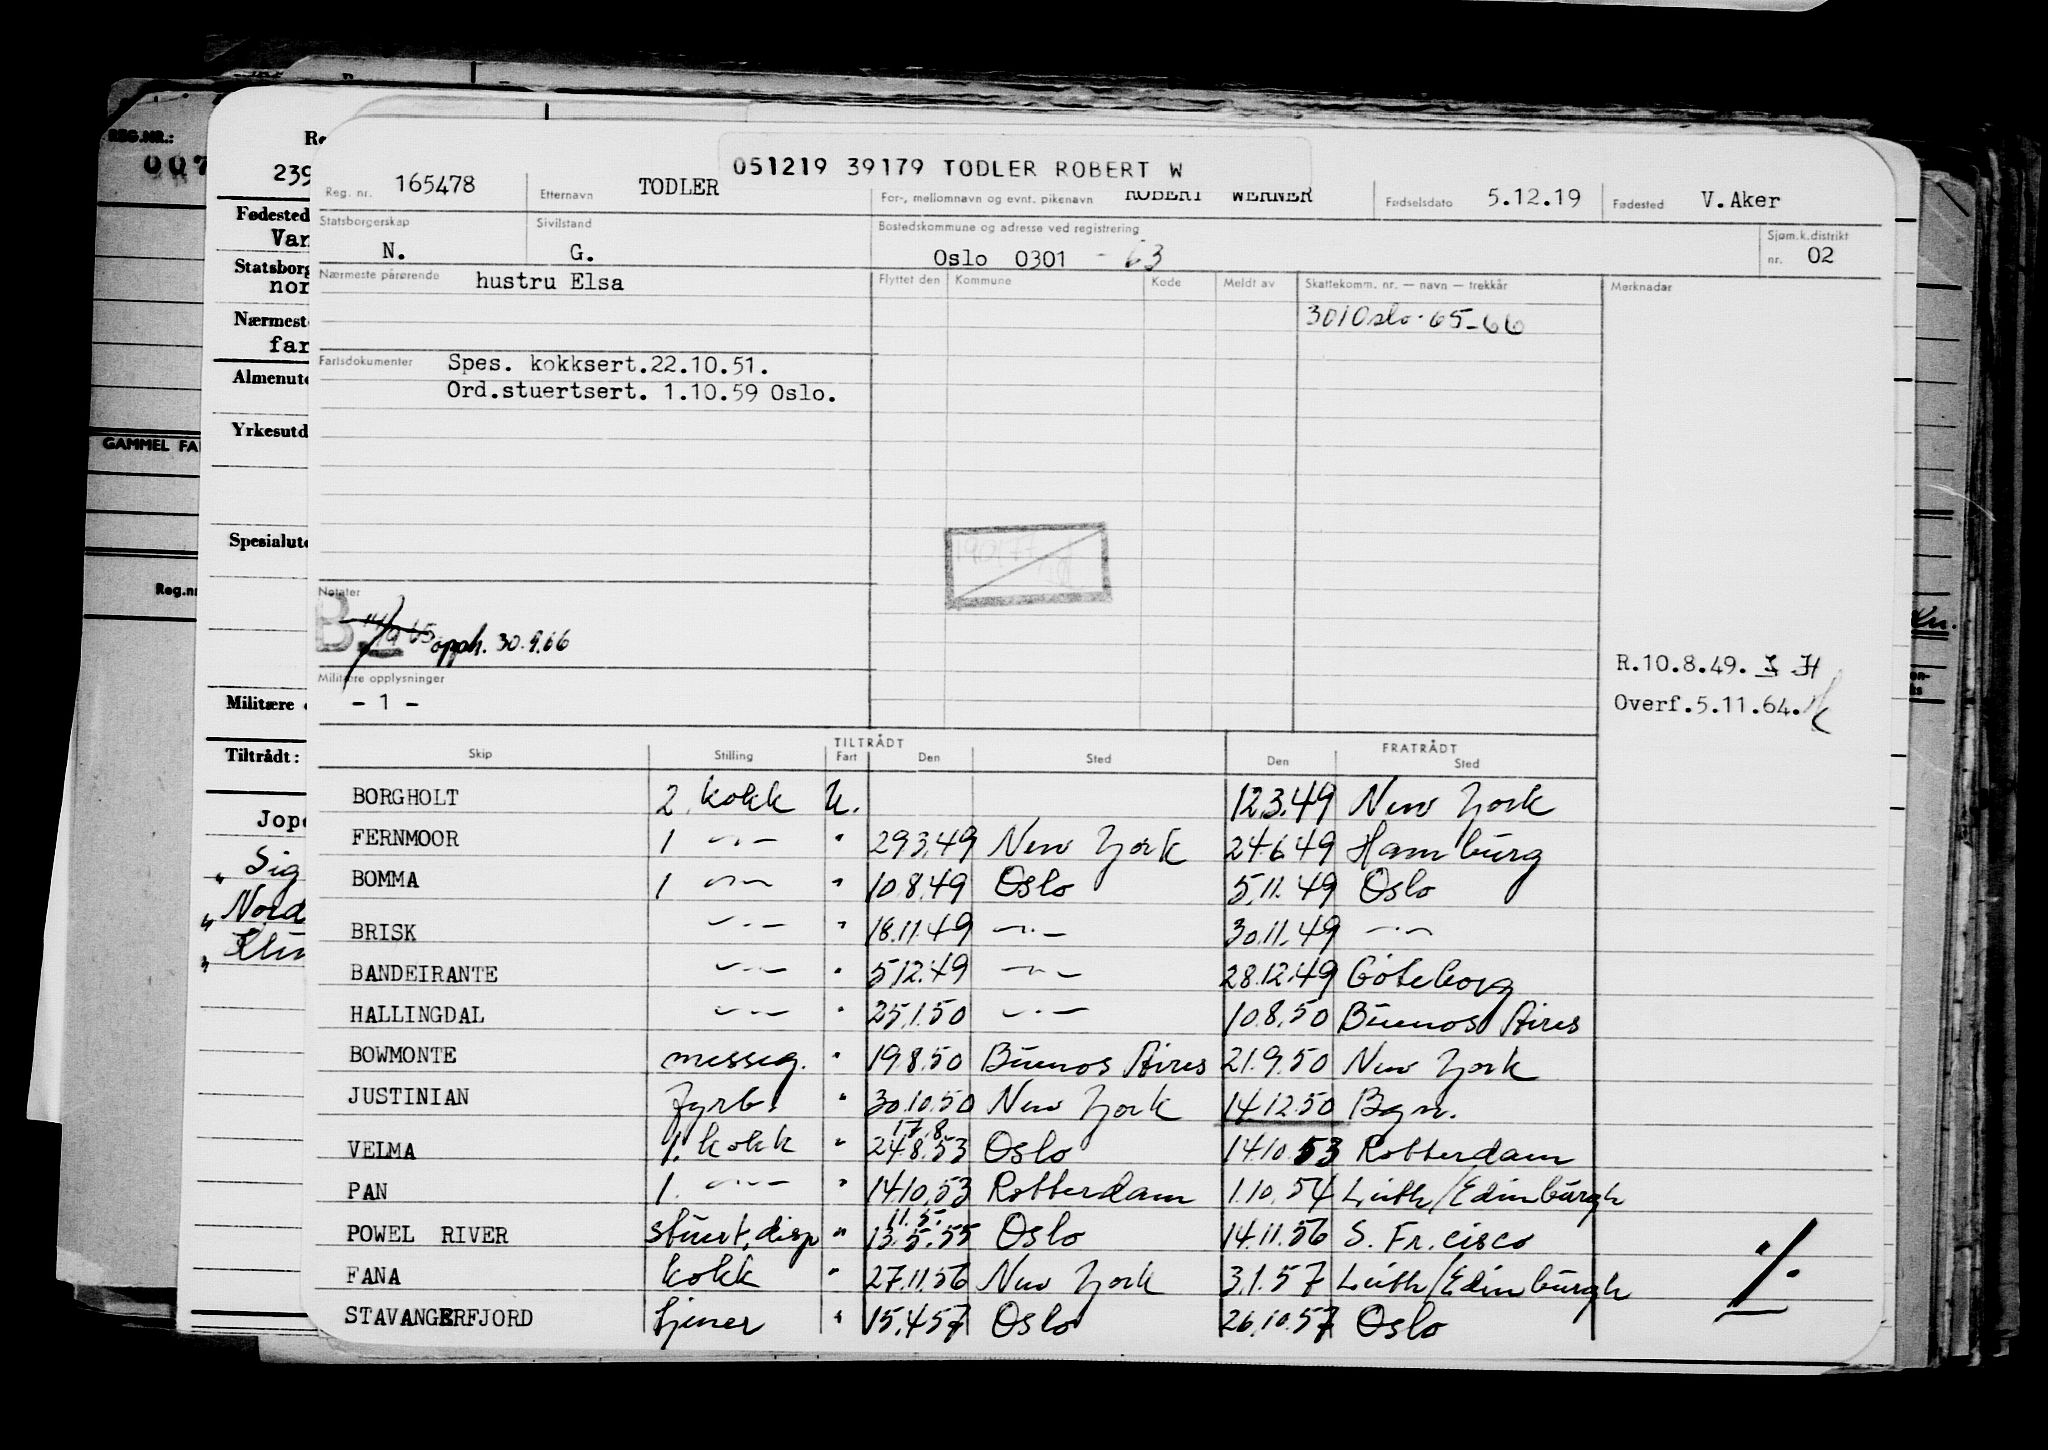 REG.NR.:
007
239
Fødested
Statsborg
Nærmest
far
Almenut
Yrkesutd
GAMMEL FA
Spesialut
Reg.nr
Militære
Tiltrådt:
Sig
Nord
051219 39179 TODLER ROBERT W
Reg. nr. 165478 Etternavn TODLER For-, mellomnavn og evnt. pikenavn ROBERT WERNER Fødselsdato 5.12.19 Fødested V.Aker
Statsborgerskap N. Sivilstand G. Bostedskommune og adresse ved registrering Oslo 0301 - 63 Sjøm.k.distrikt nr. 02
Nærmeste pårørende hustru Elsa Flyttet den Kommune Kode Meldt av Skattekomm. nr. — navn — trekkår Merknader
301 Oslo - 65-66
Fartsdokumenter Spes. kokksert.22.10.51.
Ord.stuertsert. 1.10.59 Oslo.
Notater
B. opph. 30.9.66
R.10.8.49.
Militære opplysninger
- 1 -
Overf.5.11.64.
TILTRÅDT FRATRÅDT
Skip Stilling Fart Den Sted Den Sted
BORGHOLT 2. kokk U. 12.3.49 New York
FERNMOOR 1 —"— " 29.3.49 New York 24.6.49 Hamburg
BOMMA 1 —"— " 10.8.49 Oslo 5.11.49 Oslo
BRISK —"— " 18.11.49 —"— 30.11.49 —"—
BANDEIRANTE —"— " 5.12.49 —"— 28.12.49 Göteborg
HALLINGDAL —"— " 25.1.50 —"— 10.8.50 Buenos Aires
BOWMONTE messeg. " 19.8.50 Buenos Aires 21.9.50 New York
JUSTINIAN fyrb. " 30.10.50 New York 14.12.50 Bgn.
17.8.
VELMA 1. kokk " 24.8.53 Oslo 14.10.53 Rotterdam
PAN 1. —"— " 14.10.53 Rotterdam 1.10.54 Leith/Edinburgh
11.5.
POWEL RIVER stuert, disp " 13.5.55 Oslo 14.11.56 S. Fr.cisco
FANA kokk " 27.11.56 New York 3.1.57 Leith/Edinburgh
STAVANGERFJORD tjener " 15.4.57 Oslo 26.10.57 Oslo